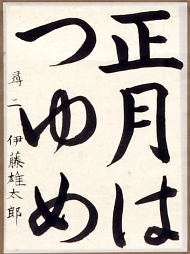 正月は
つゆめ
尋二 伊藤雄太郎